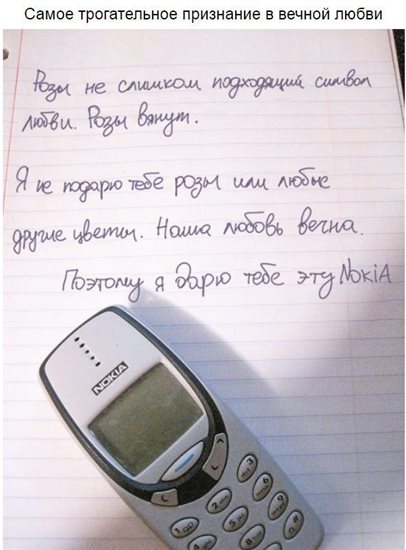 Самое трогательное признание в вечной любви
Розы не слишком подходящий символ
любви. Розы вянут.
Я не подарю тебе розы или любые
другие цветы. Наша любовь вечна.
Поэтому я дарю тебе эту NokiA
NOKIA
C
1
2 abc
3 def
4 ghi
5 jkl
6 mno